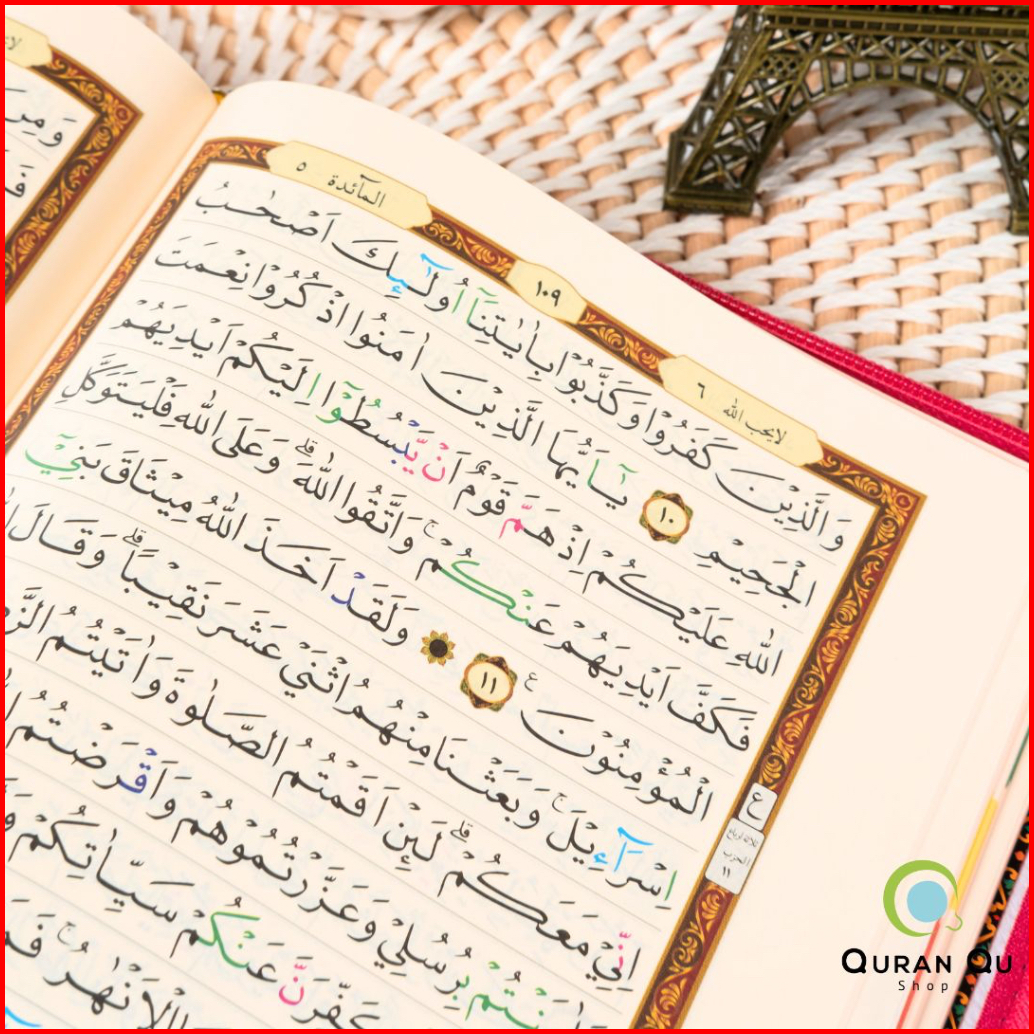 المآئدة ٥
١٠٩
لايحب الله ٦
وَالَّذِيْنَ كَفَرُوْا وَكَذَّبُوْا بِاٰيٰتِنَآ اُولٰۤىِٕكَ اَصْحٰبُ
الْجَحِيْمِ ١٠ يٰٓاَيُّهَا الَّذِيْنَ اٰمَنُوا اذْكُرُوْا نِعْمَتَ
اللّٰهِ عَلَيْكُمْ اِذْ هَمَّ قَوْمٌ اَنْ يَّبْسُطُوْٓا اِلَيْكُمْ اَيْدِيَهُمْ
فَكَفَّ اَيْدِيَهُمْ عَنْكُمْۚ وَاتَّقُوا اللّٰهَ ۗ وَعَلَى اللّٰهِ فَلْيَتَوَكَّلِ
الْمُؤْمِنُوْنَ ࣖ ١١ ۞ وَلَقَدْ اَخَذَ اللّٰهُ مِيْثَاقَ بَنِيْٓ
اِسْرَاۤءِيْلَۚ وَبَعَثْنَا مِنْهُمُ اثْنَيْ عَشَرَ نَقِيْبًاۗ وَقَالَ
اِنِّيْ مَعَكُمْ ۗ لَىِٕنْ اَقَمْتُمُ الصَّلٰوةَ وَاٰتَيْتُمُ
بِرُسُلِيْ وَعَزَّرْتُمُوْهُمْ وَاَقْرَضْتُمُ
عَنْكُمْ سَيِّاٰتِكُمْ
الْاَنْهٰرُۚ
ع
ثلاثة ارباع
الحزب
١١
QURAN QU
Shop